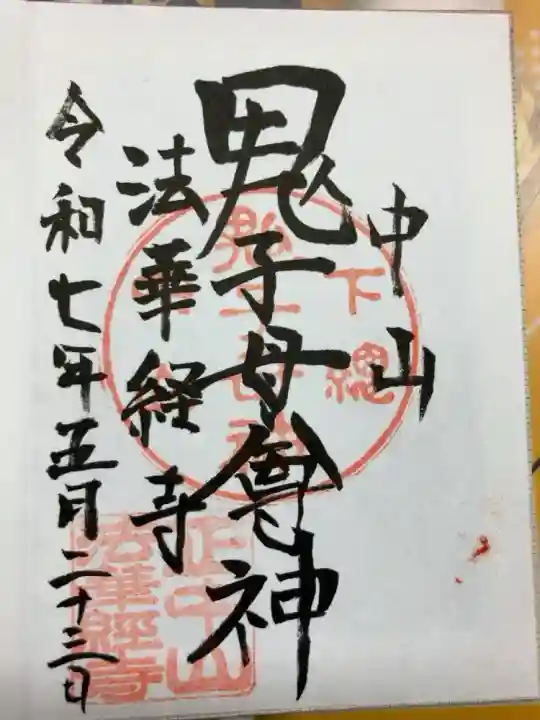 中山
鬼子母尊神
法華経寺
令和七年五月二十三日
下總
鬼子母神
正中山
法華經寺